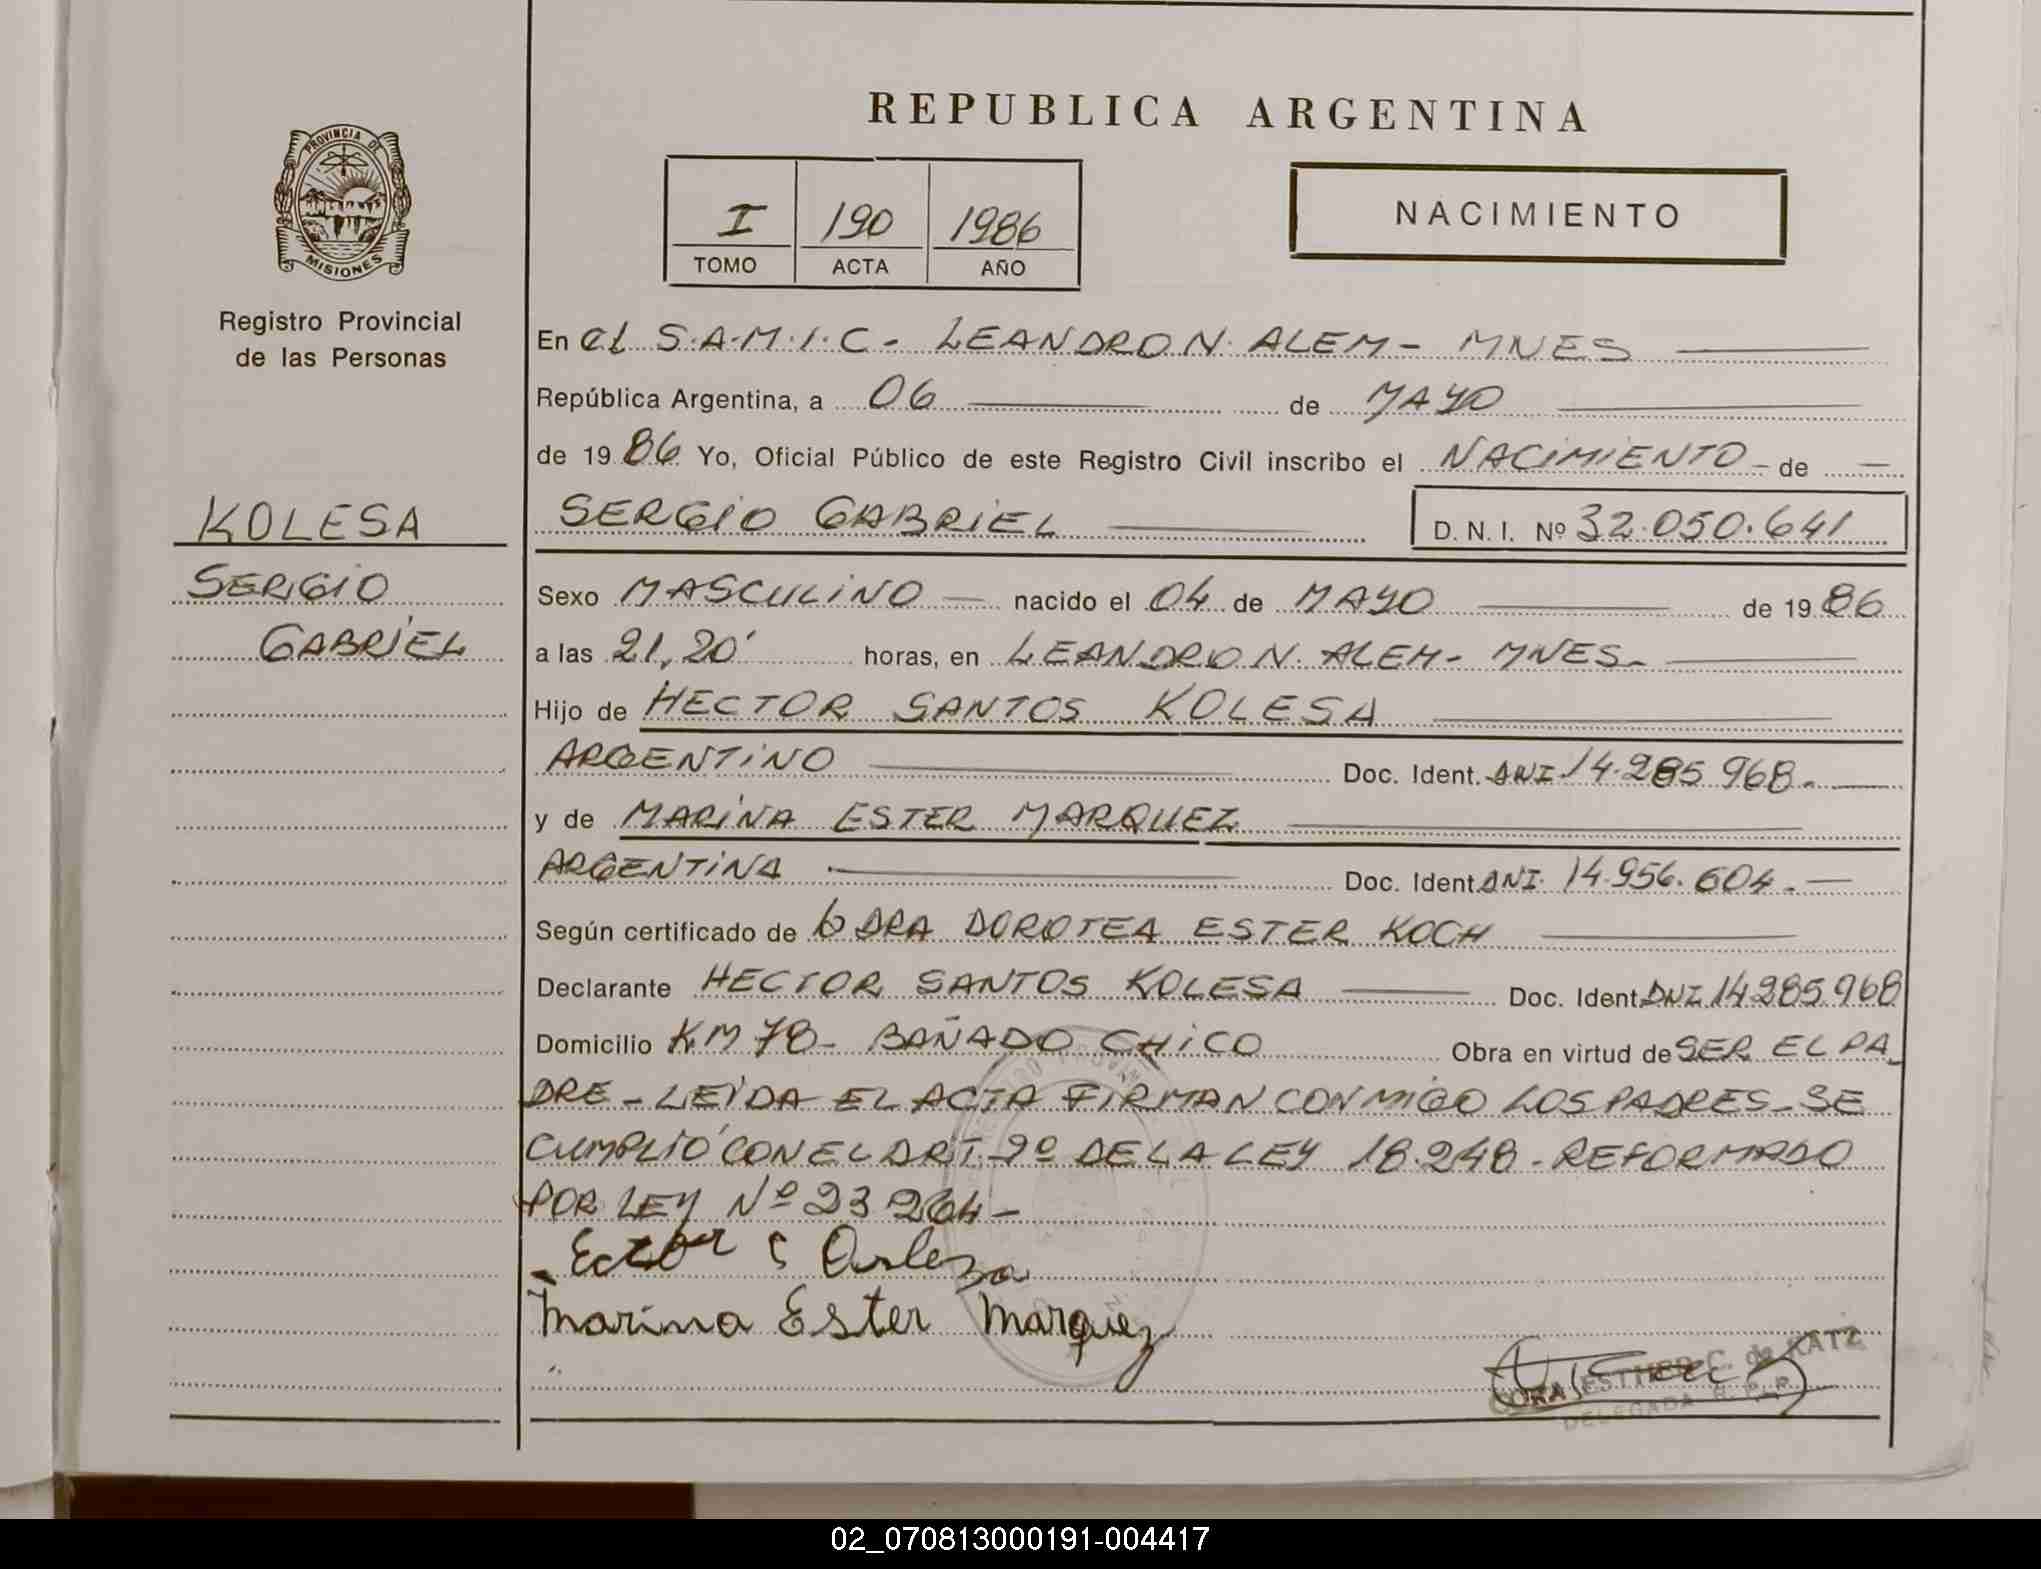 PROVINCIA DE
MISIONES
Registro Provincial
de las Personas
KOLESA
SERGIO
GABRIEL
REPUBLICA ARGENTINA
I 190 1986
TOMO ACTA AÑO
NACIMIENTO
En el S.A.M.I.C. - LEANDRO N. ALEM - MNES
República Argentina, a 06 de MAYO
de 1986 Yo, Oficial Público de este Registro Civil inscribo el NACIMIENTO - de
SERGIO GABRIEL D. N. I. Nº 32.050.641
Sexo MASCULINO nacido el 04 de MAYO de 1986
a las 21,20' horas, en LEANDRO N. ALEM - MNES.
Hijo de HECTOR SANTOS KOLESA
ARGENTINO Doc. Ident. DNI 14.285.968.-
y de MARINA ESTER MARQUEZ
ARGENTINA Doc. Ident. DNI. 14.956.604.-
Según certificado de DRA DOROTEA ESTER KOCH
Declarante HECTOR SANTOS KOLESA Doc. Ident. DNI 14.285.968
Domicilio KM 78 - BAÑADO CHICO Obra en virtud de SER EL PA
DRE - LEIDA EL ACTA FIRMAN CONMIGO LOS PADRES - SE
CUMPLIO CON EL ART. 2º DE LA LEY 18.248 - REFORMADO
POR LEY Nº 23 264 -
Marina Ester Marquez
ESTHER C. de KATZ
DELEGADA R. P. P.
02_070813000191-004417